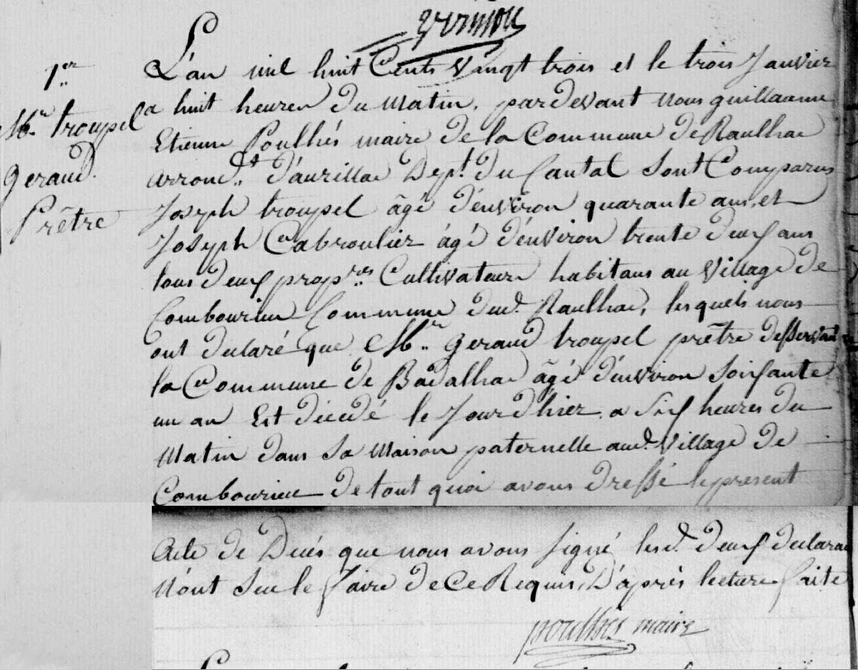 1.er
Mr. troupel
Geraud.
Prêtre
L'an mil huit Cents Vingt trois et le trois Janvier
a huit heures du Matin, pardevant nous guillaume
Etienne Poulhés maire de la Commune de Raulhac
arrond.t d'aurillac Dept. du Cantal Sont Comparus
Joseph troupel âgé d'environ quarante ans et
Joseph Cabroulier âgé d'environ trente deux ans
tous deux prop.res Cultivateurs habitans au Village de
Combourieu Commune dud. Raulhac, lesquels nous
ont declaré que Mr. Geraud troupel prêtre desservant
la Commune de Badalhac âgé d'environ Soixante
un an Est décédé le Jour d'hier a Six heures du
Matin dans Sa Maison paternelle aud. Village de
Combourieu de tout quoi avons dressé le present
Acte de Decés que nous avons Signé lesd. deux declarans
N'ont Seu le faire de Ce Requis D'après lecture faite
poulhés maire